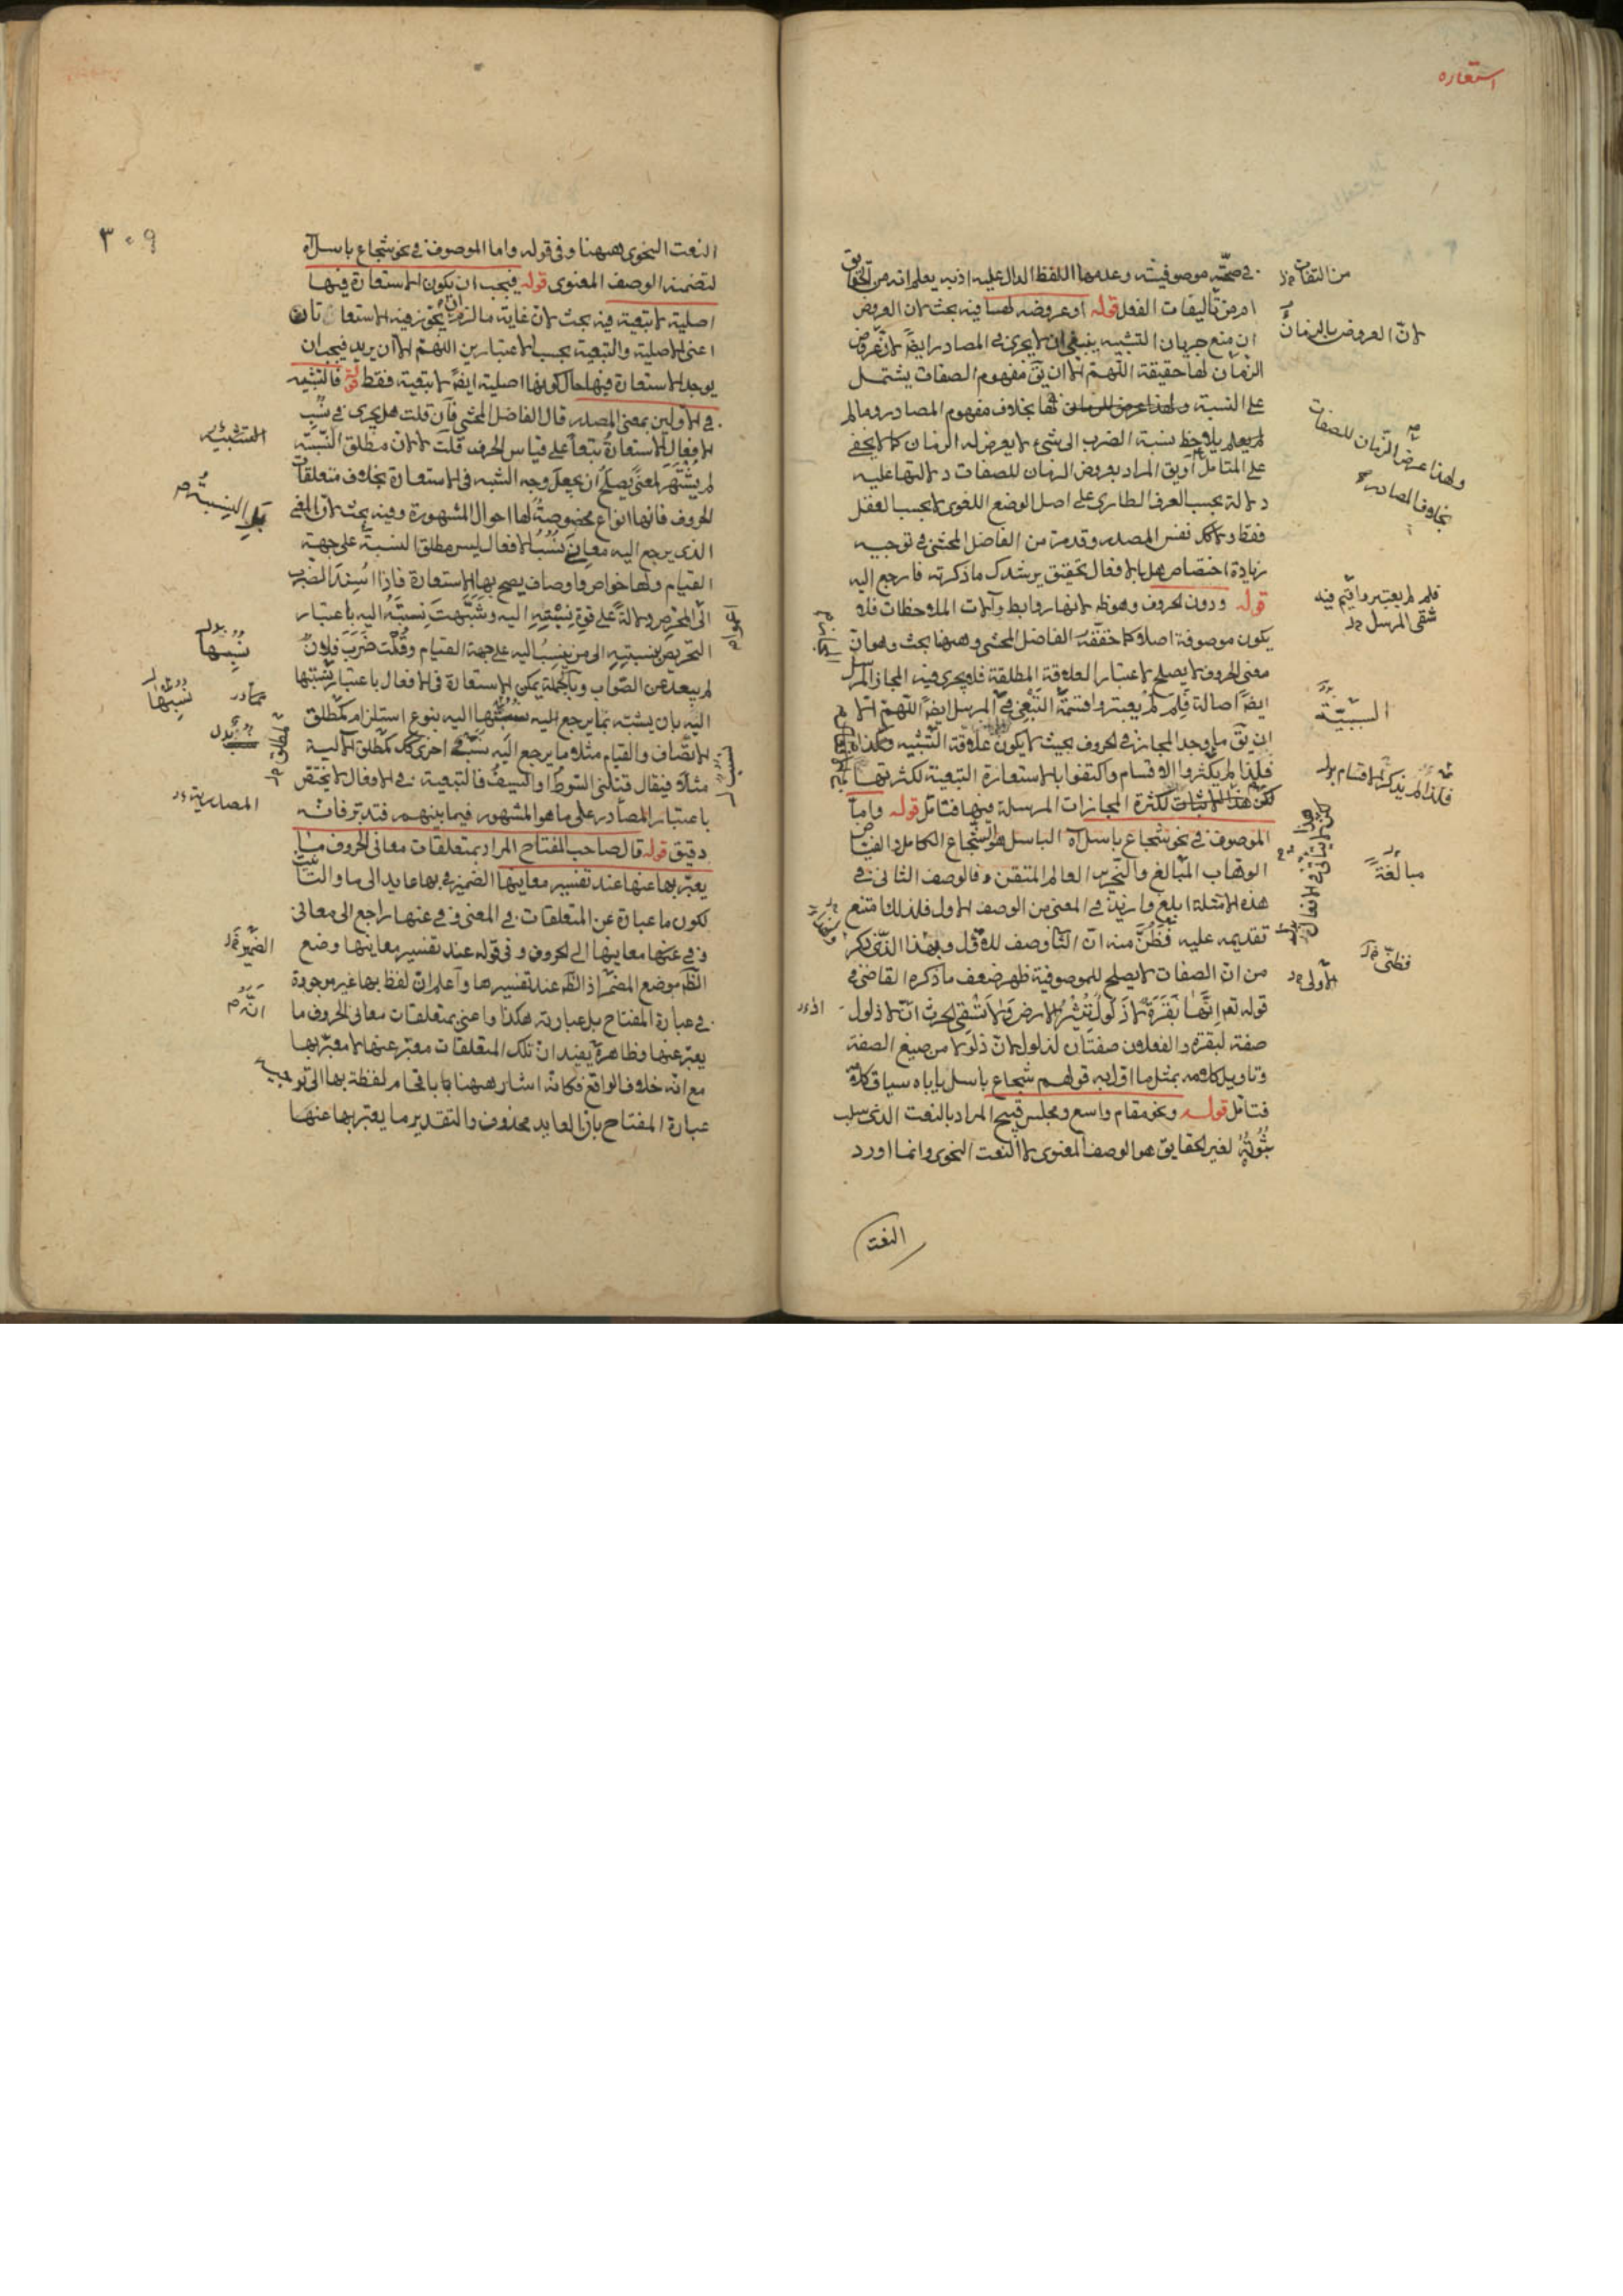 استعاره
في صحة موصوفيته وعدمها اللفظ الدال عليه اذ به يعلم انه من الحقايق
ام من تأليفات الفعل قوله او عروضه لها فيه بحث لان العروض
ان منع جريان التشبيه ينبغي ان لا يجرى في المصادر ايضا لان عروض
الزمان لها حقيقة اللهم الا ان يق مفهوم الصفات يشتمل
على النسبة ولهذا عرض للزمان لها بخلاف مفهوم المصادر وما لم
يلاحظ نسبة الضرب الى شيء لا يعرض له الزمان كما لا يخفى
على المتامل او يق المراد بعروض الزمان للصفات دلالتها عليه
دلالة بحسب العرف الطارى على اصل الوضع اللغوى لا بحسب العقل
فقط ولا كك نفس المصدر وقد مر من الفاضل المحشى في توجيه
زيادة اختصاص هل بالافعال تحقيق يرشدك ما ذكرته فارجع اليه
قوله ودون الحروف وهو ظ لانها روابط وآلات الملاحظات فلا
يكون موصوفة اصلا كما حققه الفاضل المحشى وههنا بحث وهو ان
معنى الحروف لا يصلح لاعتبار العلاقة المطلقة فلا يجرى فيه المجاز المرسل
ايضا اصالة فلم لم يعتبروا قسمة التبعي في المرسل ايضا اللهم الا
ان يق ما وجد المجاز في الحروف بحيث لا يكون علاقة التشبيه وهكذا
فلذا لم يكثروا الاقسام واكتفوا بالاستعارة التبعية لكثرتها
لكثرة المجازات المرسلة فيها فتأمل قوله واما
الموصوف في نحو شجاع باسل آه الباسل هو الشجاع الكامل والفياض
الوهاب المبالغ والنحرير العالم المتقن فالوصف الثانى في
هذه الامثلة ابلغ وازيد في المعنى من الوصف الاول فلذلك امتنع
تقديمه عليه فظن منه ان الثا وصف للاول وبهذا الذى ذكر
من ان الصفات لا يصلح للموصوفية ظهر ضعف ما ذكره القاضى في
قوله تع انها بقرة لا ذلول تثير الارض ولا تسقى الحرث ان لا ذلول
صفة لبقرة والفعلان صفتان لذلول لان ذلولا من صيغ الصفة
وتاويل كلامه بمثل ما اول به قولهم شجاع باسل ياباه سياق كلامه
فتامل قوله ونحو مقام واسع ومجلس فسيح المراد بالنعت الذى سلب
ثبوته لغير الحقايق هو الوصف المعنوى لا النعت النحوى وانما اورد
النعت
لان العروض بالزمان
ولهذا عرض الزمان للصفات
بخلاف المصادر
شقى المرسل
السببية
مبالغة
٣٠٩
النعت النحوى ههنا وفى قوله واما الموصوف في نحو شجاع باسل آه
لتضمنه الوصف المعنوى قوله فيجب ان يكون الاستعارة فيها
اصلية لا تبعية فيه بحث لان غاية ما لزم ان يتحقق فيه الاستعارتان
اعنى الاصلية والتبعية بحسب الاعتبارين اللهم الا ان يريد فيجب ان
يوجد الاستعارة فيها حال كونها اصلية ايضا لا تبعية فقط قوله فالتشبيه
في الاولين بمعنى المصدر قال الفاضل المحشى فان قلت هل يجرى في نسب
الافعال الاستعارة تبعا على قياس الحروف قلت لا لان مطلق النسبة
لم يشتهر لمعنى يصلح ان يجعل وجه الشبه فى الاستعارة بخلاف متعلقات
الحروف فانها انواع مخصوصة لها احوال المشهورة وفيه بحث لان المعنى
الذى يرجع اليه معانى نسب الافعال ليس مطلق النسبة على جهة
القيام ولها خواص واوصاف يصح بها الاستعارة فاذا اسند الضرب
الى المحرض دلالة على قوة نسبته اليه وشبهت نسبته اليه باعتبار
التحريض بنسبته الى من ينسب اليه على جهة القيام وقلت ضرب فلان
لم يبعد عن الصواب وبالجملة يمكن الاستعارة فى الافعال باعتبار نسبتها
اليه بان يشبه بما يرجع اليه نسبتها اليه بنوع استلزام كمطلق
الاتصاف والقيام مثلا وما يرجع اليه نسب اخرى كك كمطلق الآلية
مثلا فيقال قتلنى السوط او السيف فالتبعية في الافعال لا يختص
باعتبار المصادر على ما هو المشهور فيما بينهم فتدبر فانه
دقيق قوله قال صاحب المفتاح المراد بمتعلقات معانى الحروف ما
يعبر بها عنها عند تفسير معانيها الضمير في بها عايد الى ما والتانيث
لكون ما عبارة عن المتعلقات في المعنى وفى عنها راجع الى معانى
وفى معانيها الى الحروف وفى قوله عند تفسير معانيها وضع
الظ موضع المضمر اذ الظ عند تفسيرها واعلم ان لفظ بها غير موجودة
في عبارة المفتاح بل عبارته هكذا واعنى بمتعلقات معانى الحروف ما
يعبر عنها وظاهره يفيد ان تلك المتعلقات معبر عنها لا معبر بها
مع انه خلاف الواقع فكانه اشار ههنا باقحام لفظة بها الى توجيه
عبارة المفتاح بان العايد محذوف والتقدير ما يعبر بها عنها
بل النسبة
المصادرية
الضمير